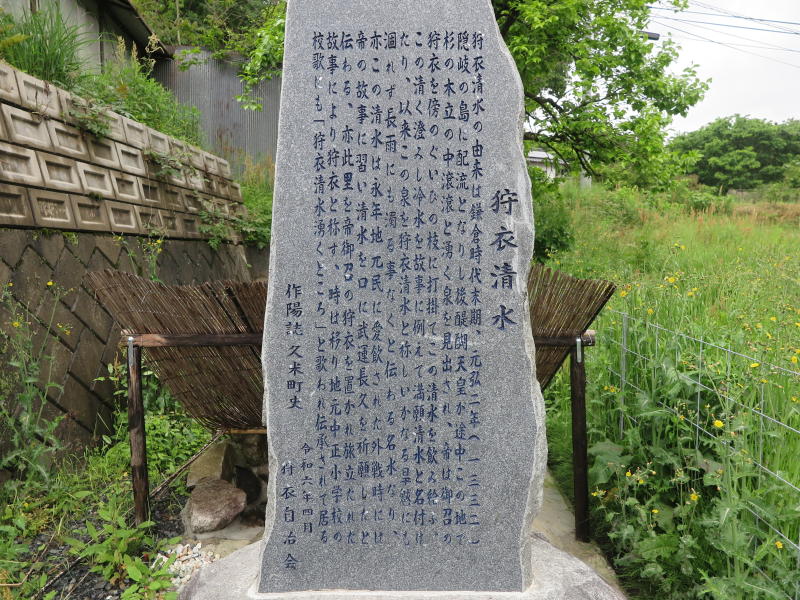 狩衣清水
狩衣清水の由来は鎌倉時代末期、元弘二年（一三三二）
隠岐の島に配流となりし後醍醐天皇が途中この地で
杉の木立の中滾滾と湧く泉を見出され、帝は御召の
狩衣を傍のぐいひの枝に打掛てこの清水を飲み給ふ、
この清く澄みし冷水を故事に例えて満願清水と名付け
たり、以来この泉を狩衣清水と称しいかなる旱魃にも
涸れず長雨にも濁る事なくと伝わる名水なり、
亦この清水は永年地元民に愛飲された外戦時には
帝の故事に習い清水を口に武運長久を祈願したと
伝わる、亦此里を帝御召の狩衣を置かれ旅立たれた
故事により狩衣と称す、時は移り地元中正小学校の
校歌にも「狩衣清水湧くところ」と歌われ伝承されて居る
作陽誌 久米町史
令和六年四月
狩衣自治会